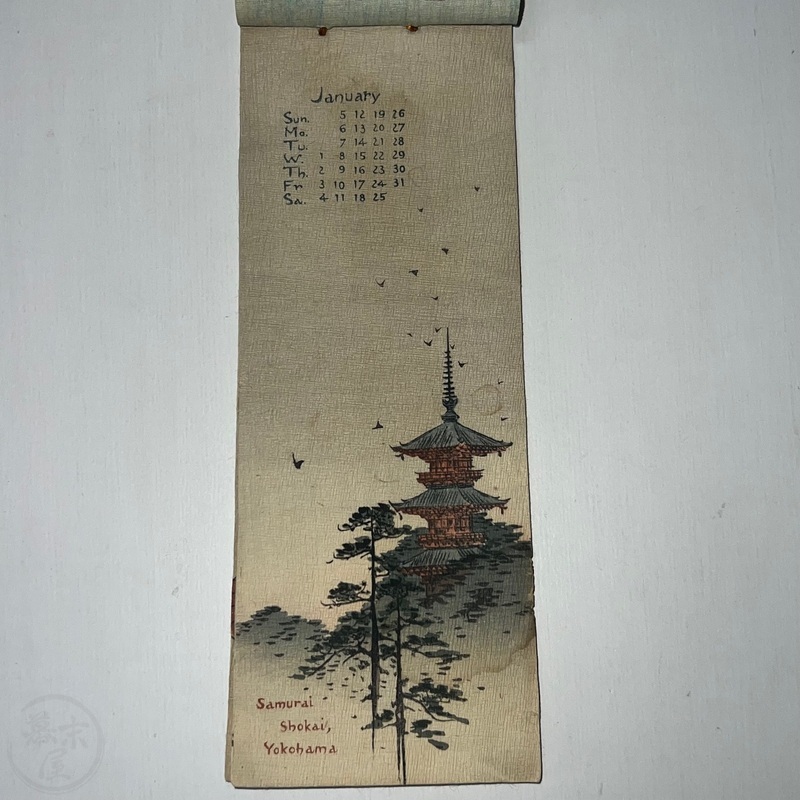 January
Sun. 5 12 19 26
Mo. 6 13 20 27
Tu. 7 14 21 28
W. 1 8 15 22 29
Th. 2 9 16 23 30
Fr 3 10 17 24 31
Sa. 4 11 18 25
Samurai
Shokai,
Yokohama
幕末
屋